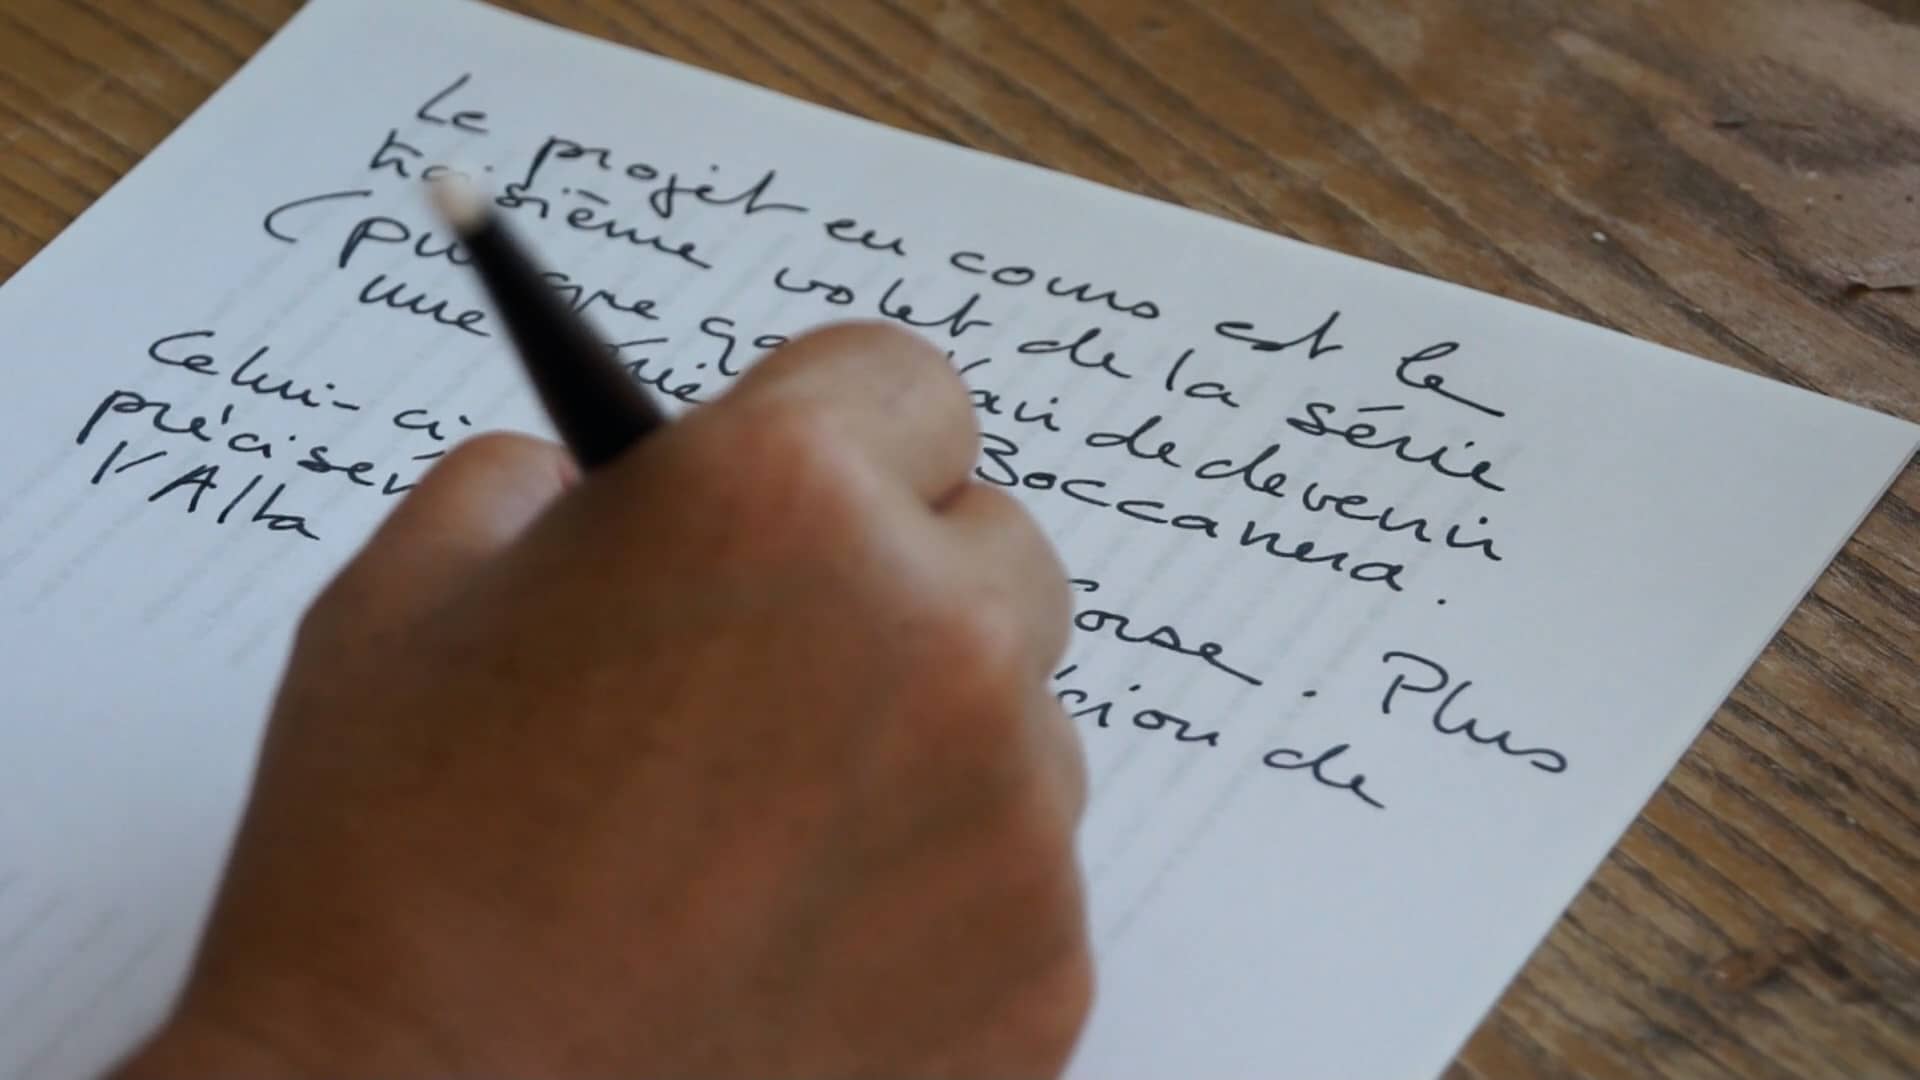 Le projet en cours est le
troisième volet de la série
(puisque ça de devenir
une série Boccanera.
Celui-ci Corse. Plus
de
l'Alta